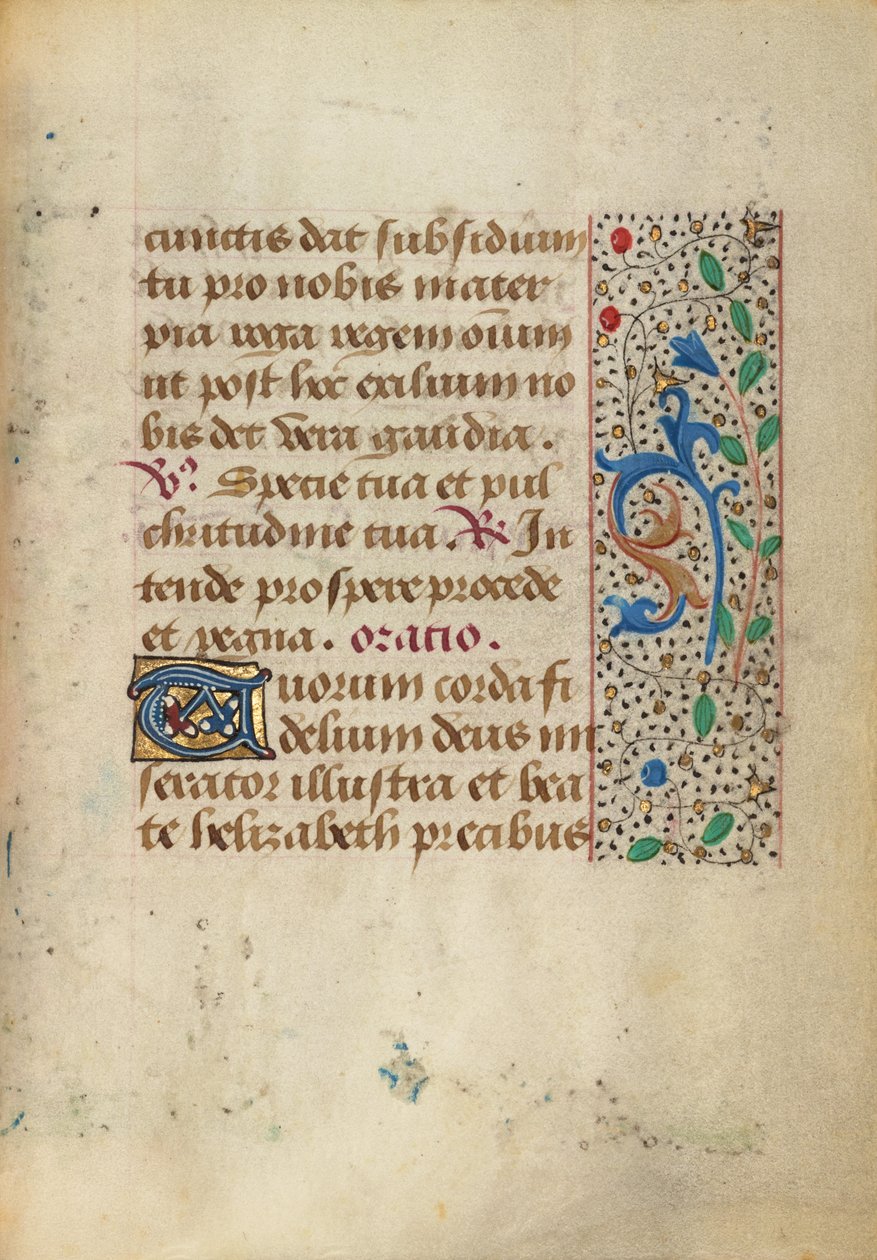 cunctis dat subsidium
tu pro nobis mater
pia roga regem om̄ium
ut post hoc exilium no
bis det vera gaudia.
V̷. Specie tua et pul
chritudine tua. R̷. In
tende prospere procede
et regna. oratio.
Tuorum corda fi
delium deus mi
serator illustra et bea
te helizabeth precibus